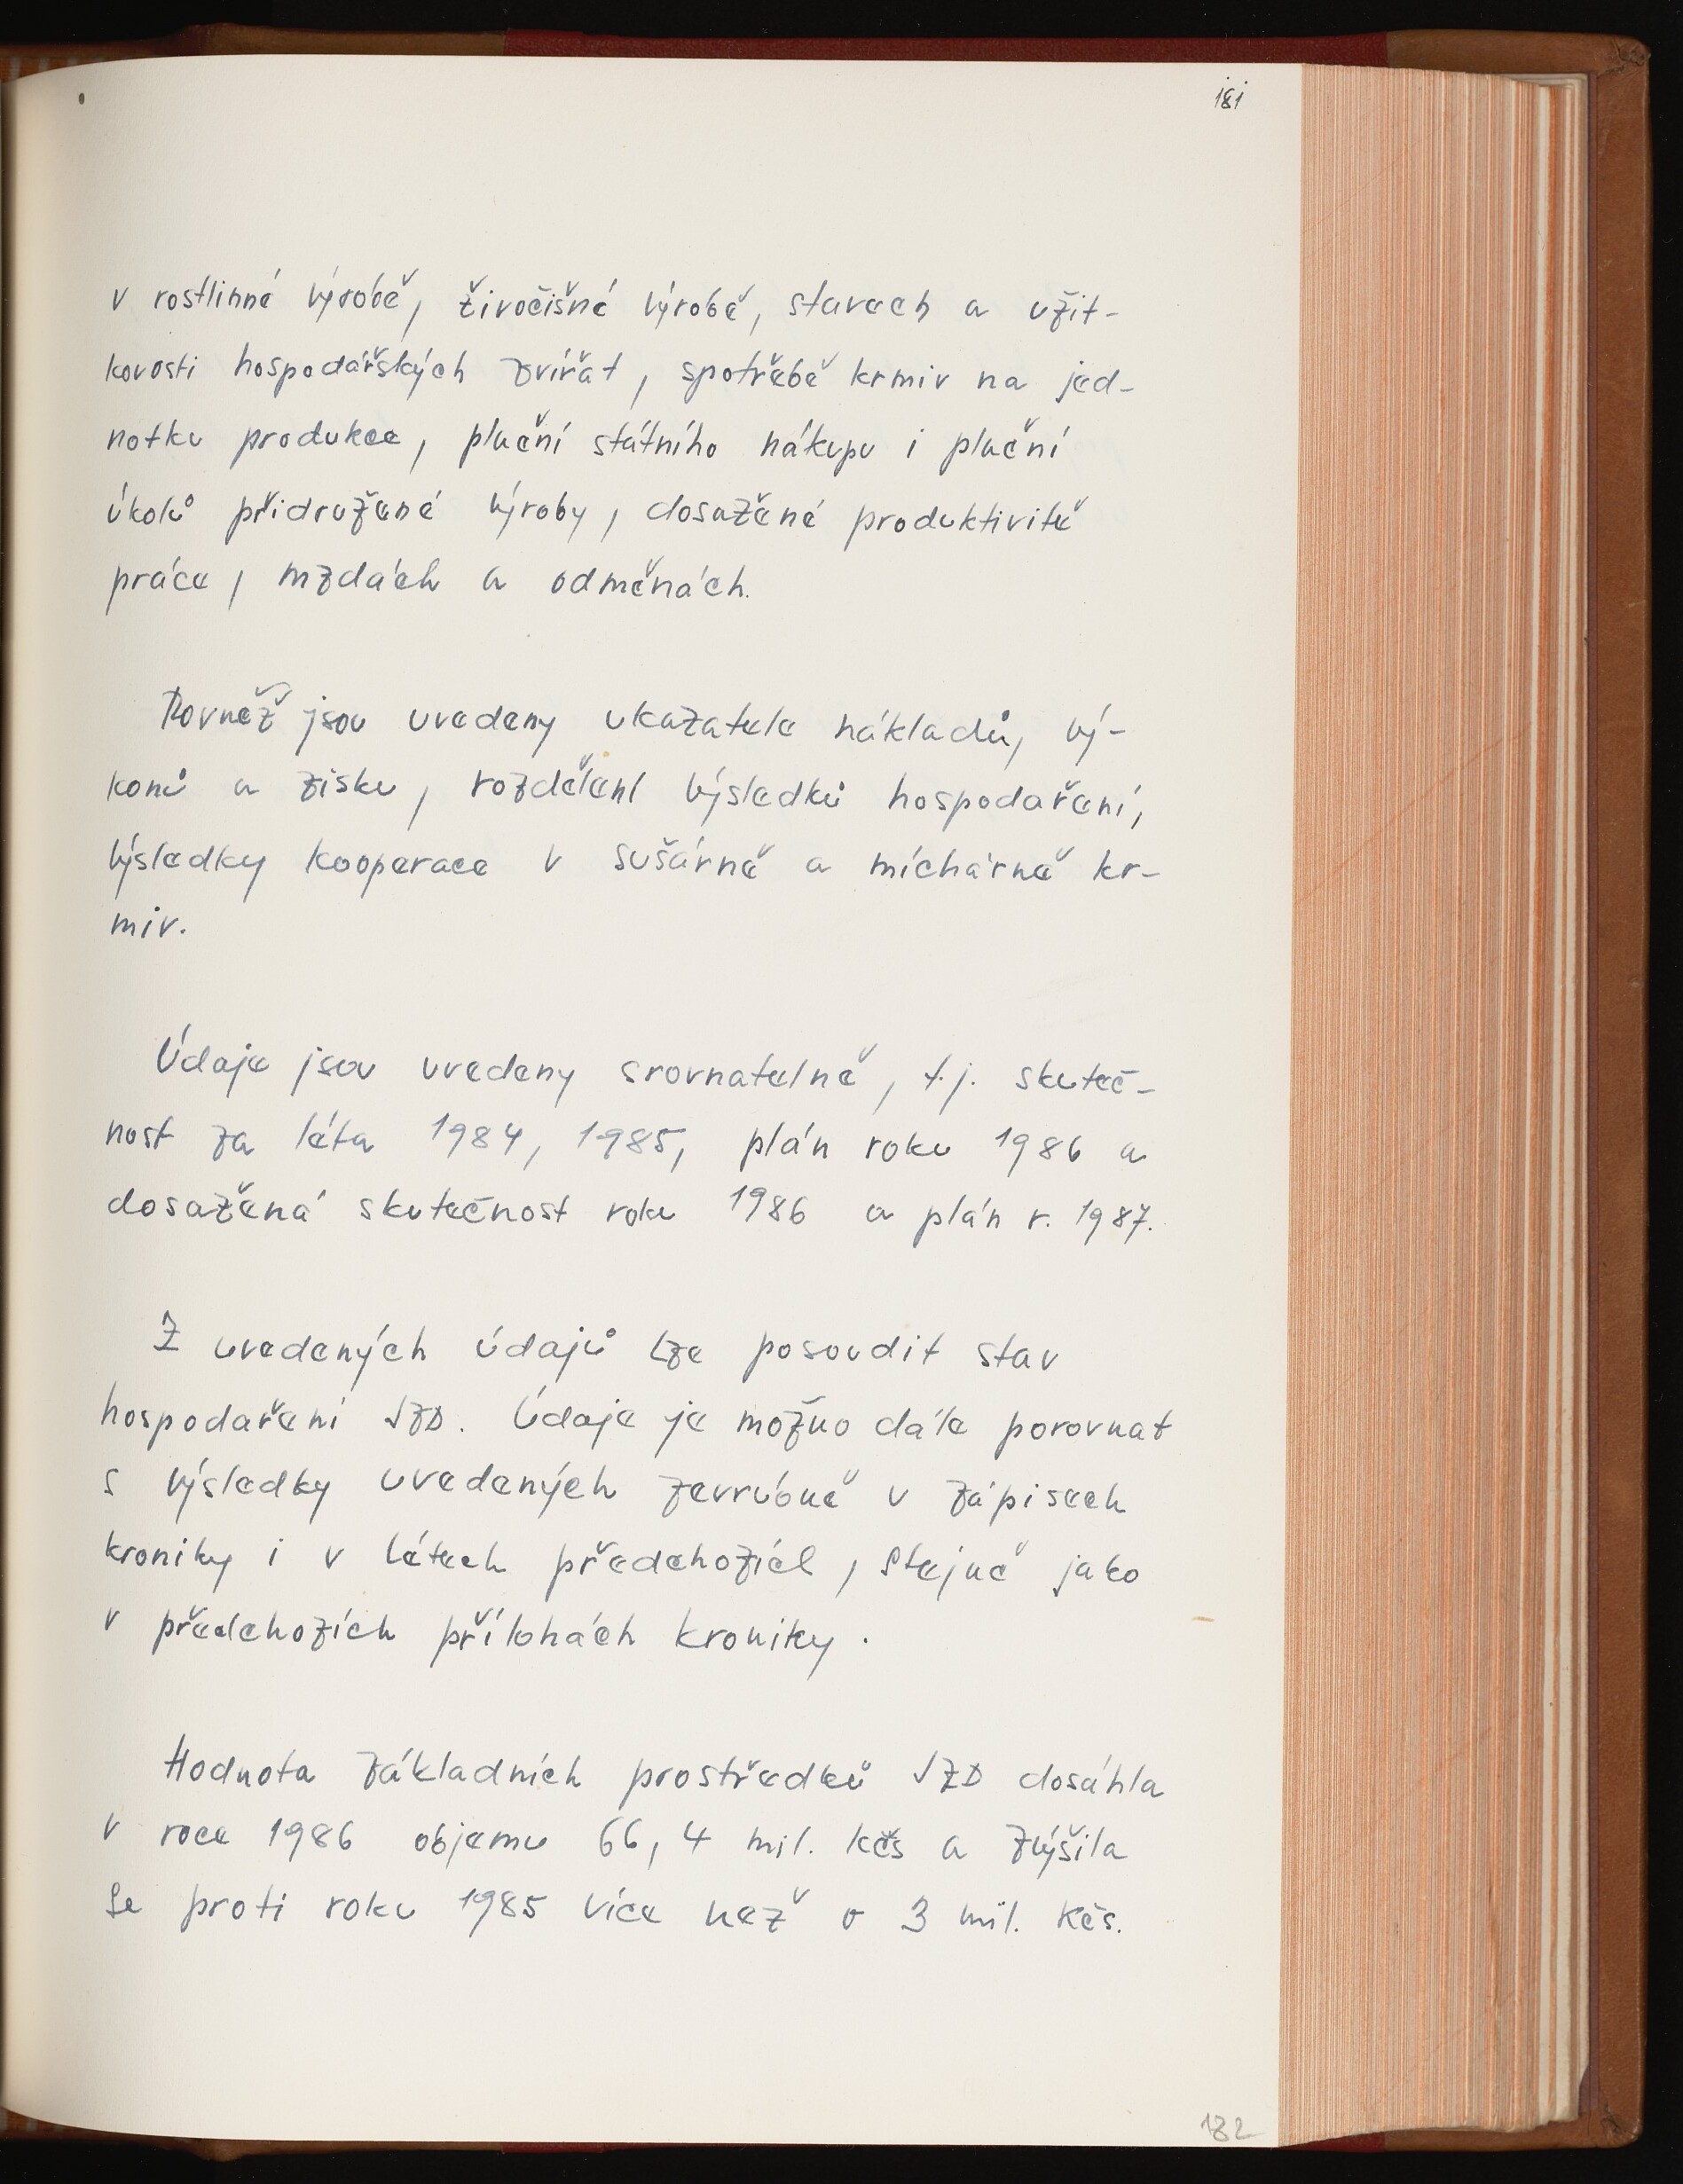 181
v rostlinné výrobě, živočišné výrobě, stavech a užit-
kovosti hospodářských zvířat, spotřebě krmiv na jed-
notku produkce, plnění státního nákupu i plnění
úkolů přidružené výroby, dosažené produktivitě
práce, mzdách a odměnách.
Rovněž jsou uvedeny ukazatele nákladů, vý-
konů a zisku, rozdělení výsledků hospodaření,
výsledky kooperace v sušárně a míchárně kr-
miv.
Údaje jsou uvedeny srovnatelně, t.j. skuteč-
nost za léta 1984, 1985, plán roku 1986 a
dosažená skutečnost roku 1986 a plán r. 1987.
Z uvedených údajů lze posoudit stav
hospodaření JZD. Údaje je možno dále porovnat
s výsledky uvedených zevrubně v zápisech
kroniky i v létech předchozích, stejně jako
v předchozích přílohách kroniky.
Hodnota základních prostředků JZD dosáhla
v roce 1986 objemu 66,4 mil. kčs a zvýšila
se proti roku 1985 více než o 3 mil. Kčs.
182